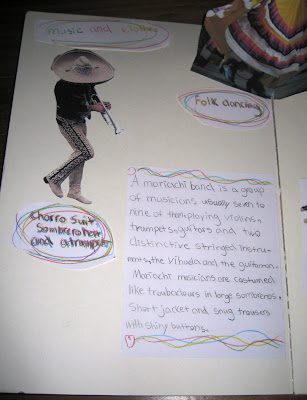 music and clothes
Folk dancing
charro suit
sombrero hat
and a trumpet
A mariachi band is a group
of musicians, usually seven to
nine of them playing violins,
trumpets, guitors and two
distinctive stringed instru-
ments, the vihuela and the guitarron.
Mariachi musicians are costumed
like troubadours in large sombreros,
short jacket and snug trousers
with shiny buttons.